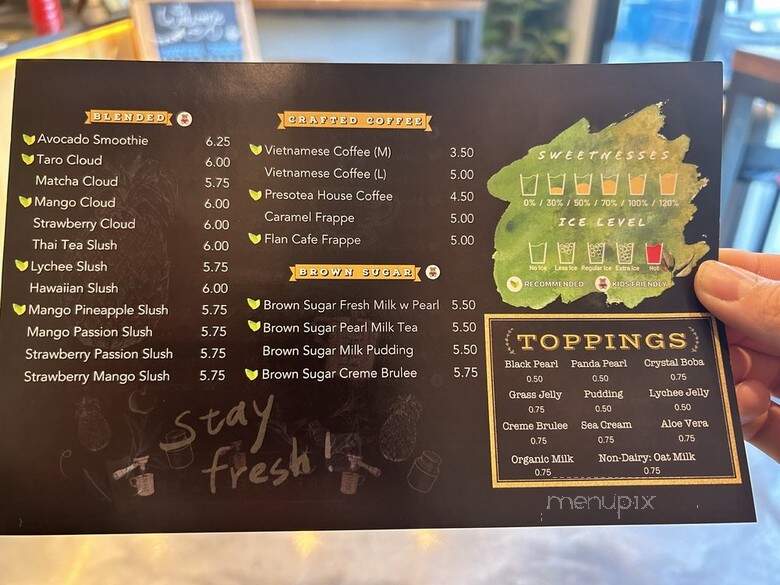 BLENDED
Avocado Smoothie 6.25
Taro Cloud 6.00
Matcha Cloud 5.75
Mango Cloud 6.00
Strawberry Cloud 6.00
Thai Tea Slush 6.00
Lychee Slush 5.75
Hawaiian Slush 6.00
Mango Pineapple Slush 5.75
Mango Passion Slush 5.75
Strawberry Passion Slush 5.75
Strawberry Mango Slush 5.75
stay
fresh!
CRAFTED COFFEE
Vietnamese Coffee (M) 3.50
Vietnamese Coffee (L) 5.00
Presotea House Coffee 4.50
Caramel Frappe 5.00
Flan Cafe Frappe 5.00
BROWN SUGAR
Brown Sugar Fresh Milk w Pearl 5.50
Brown Sugar Pearl Milk Tea 5.50
Brown Sugar Milk Pudding 5.50
Brown Sugar Creme Brulee 5.75
SWEETNESSES
0% / 30% / 50% / 70% / 100% / 120%
ICE LEVEL
No Ice Less Ice Regular Ice Extra Ice Hot
RECOMMENDED KIDS FRIENDLY
TOPPINGS
Black Pearl Panda Pearl Crystal Boba
0.50 0.50 0.75
Grass Jelly Pudding Lychee Jelly
0.75 0.50 0.50
Creme Brulee Sea Cream Aloe Vera
0.75 0.75 0.75
Organic Milk Non-Dairy: Oat Milk
0.75 0.75
menupix